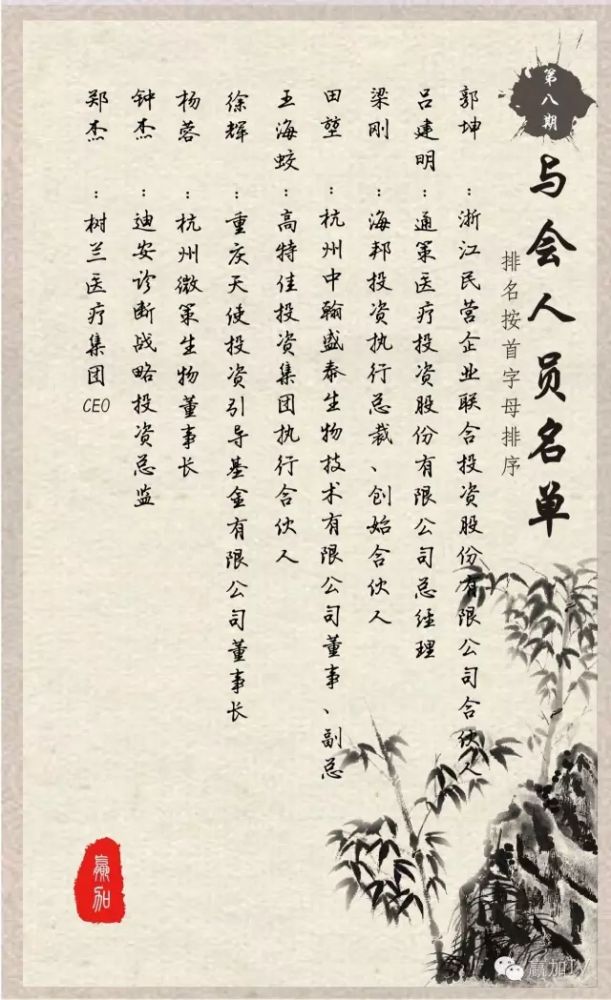 第八期
与会人员名单
排名按首字母排序
郭坤：浙江民营企业联合投资股份有限公司合伙人
吕建明：通策医疗投资股份有限公司总经理
梁刚：海邦投资执行总裁、创始合伙人
田堃：杭州中翰盛泰生物技术有限公司董事、副总
王海蛟：高特佳投资集团执行合伙人
徐辉：重庆天使投资引导基金有限公司董事长
杨蓉：杭州微策生物董事长
钟杰：迪安诊断战略投资总监
郑杰：树兰医疗集团CEO
赢加